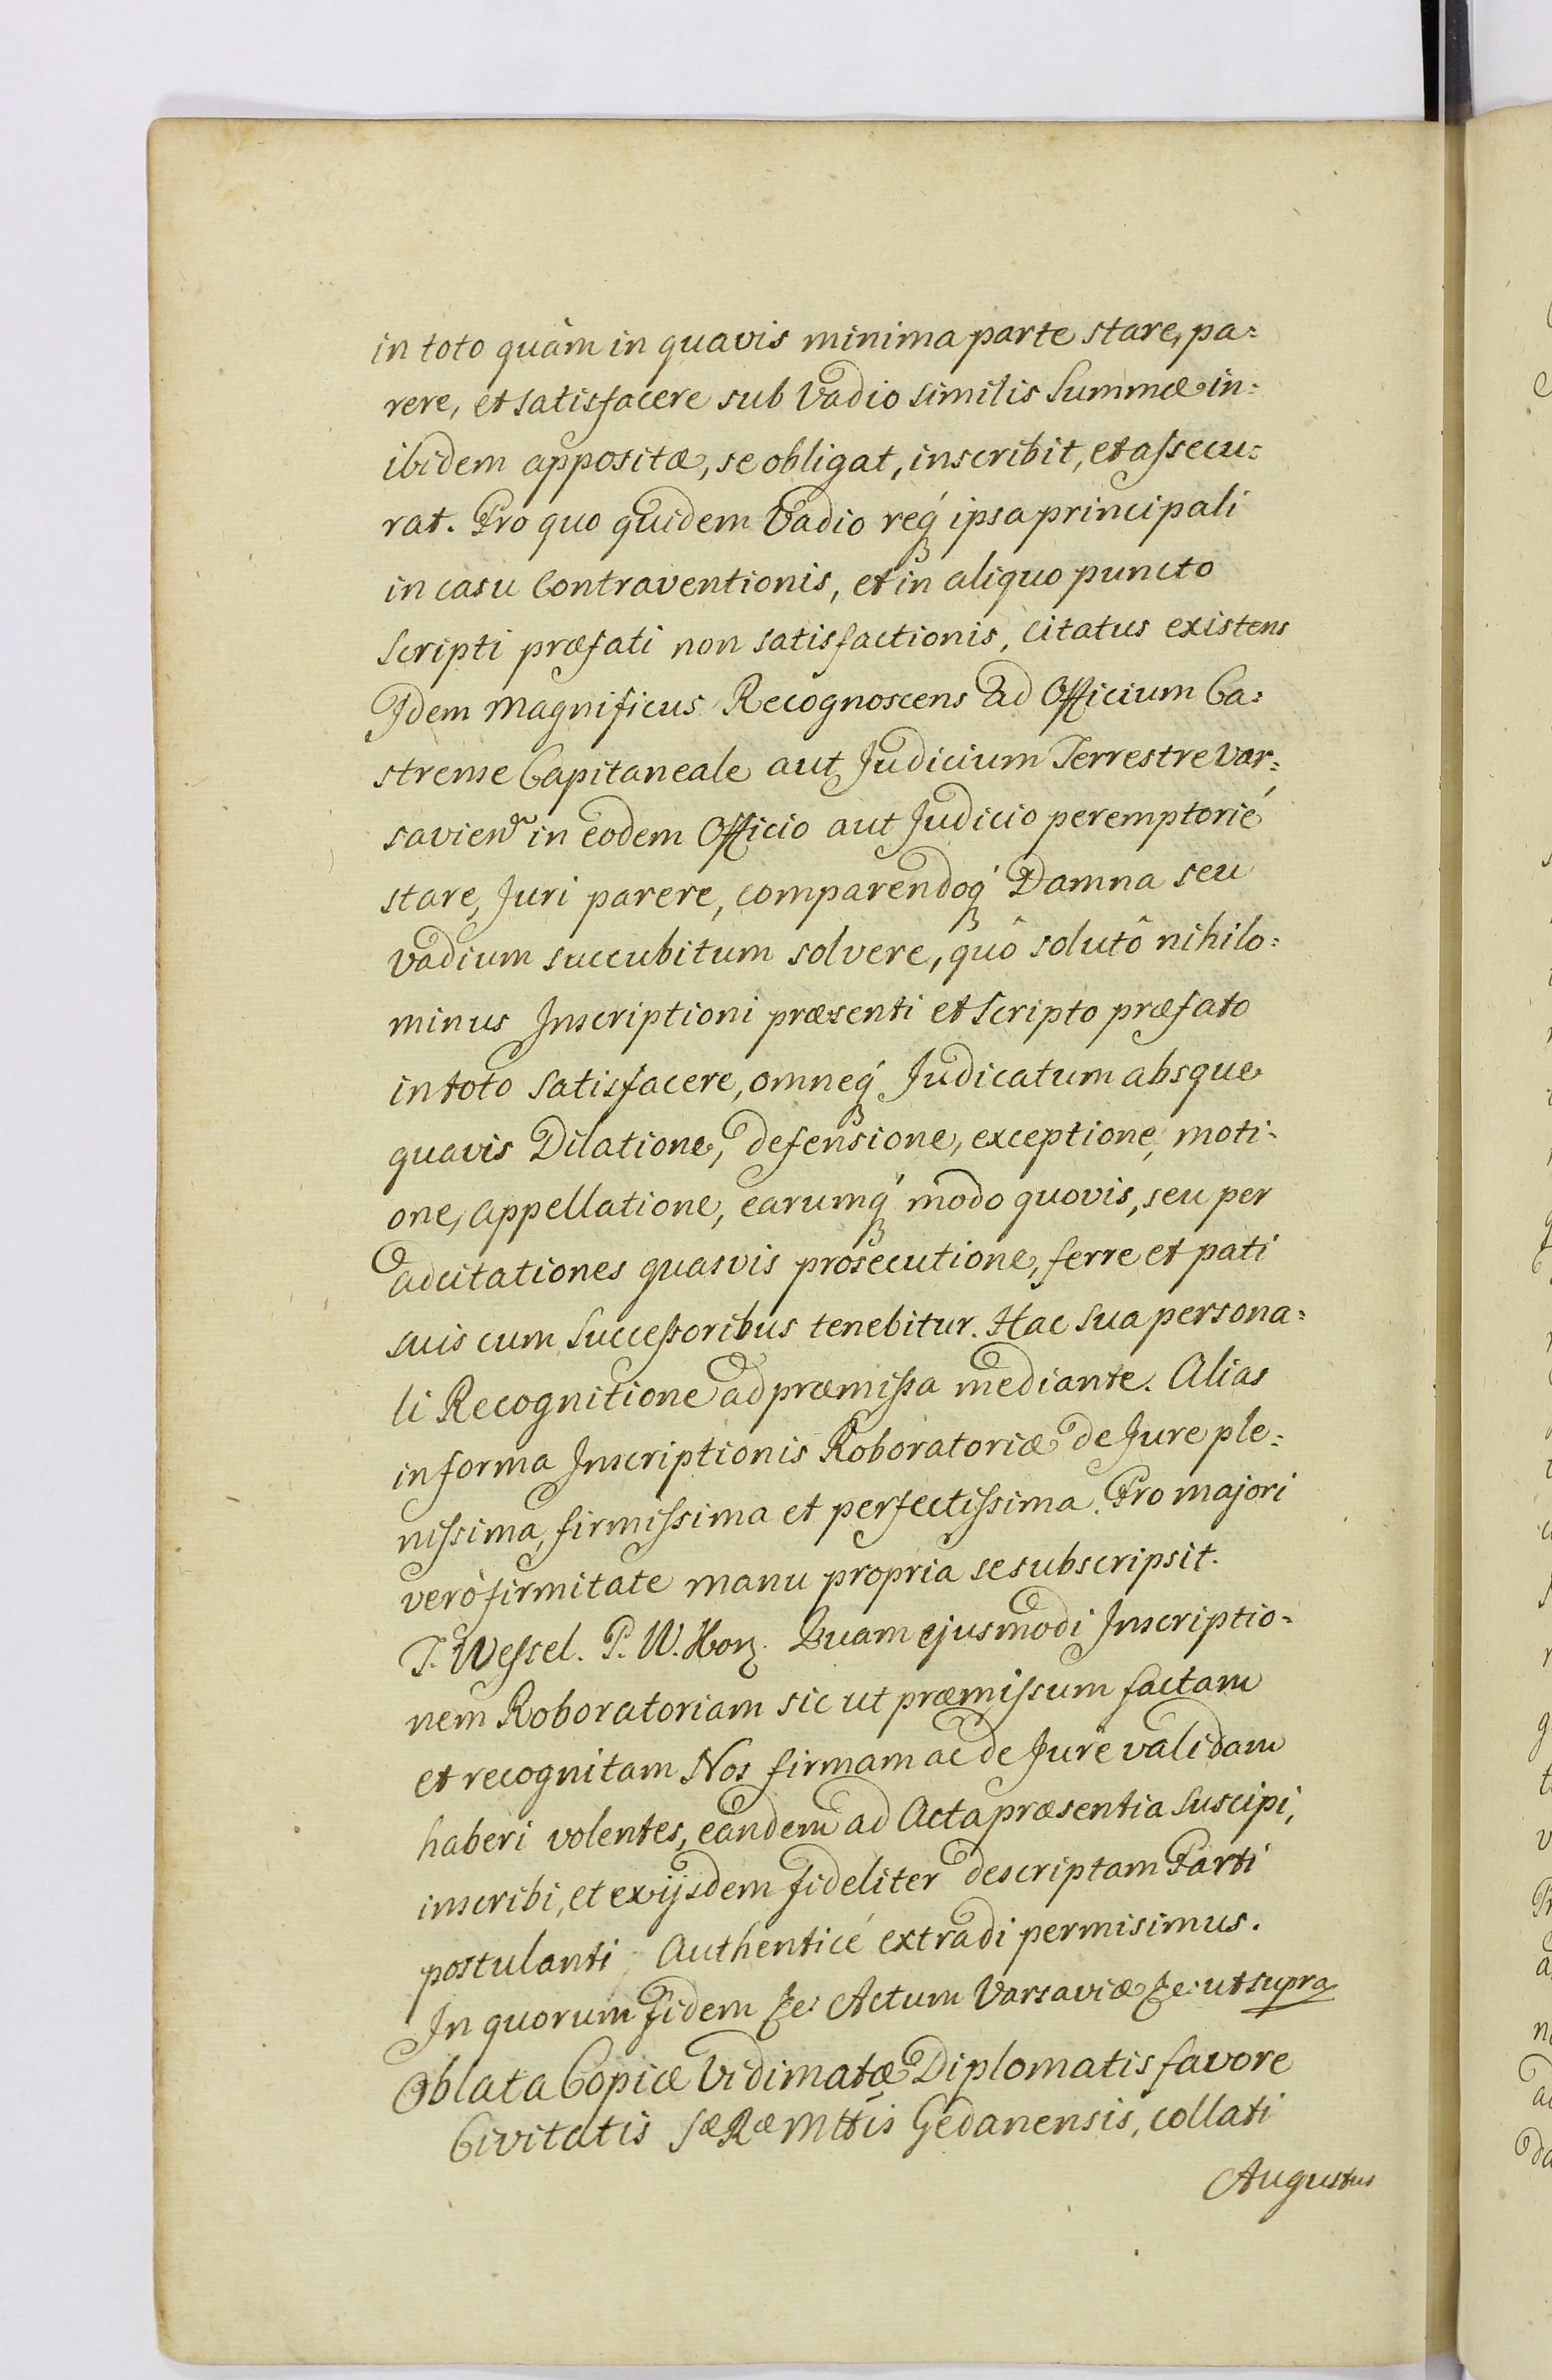 in toto quàm in quavis minima parte stare, pa=
rere, et satisfacere sub Vadio similis Summæ in=
ibidem appositæ, se obligat, inscribit, et assecu=
rat. Pro quo quidem Vadio reqȝ ipsa principali
in casu Contraventionis, et in aliquo puncto
Scripti præfati non satisfactionis, citatus existens
Idem Magnificus Recognoscens ad Officium Ca=
strense Capitaneale aut Judicium Terrestre Var=
savien̄ in eodem Officio aut Judicio peremptorié
stare, Juri parere, comparendoqȝ Damna seu
vadium succubitum solvere, quô solutô nihilo=
minus Inscriptioni præsenti et Scripto præfato
in toto satisfacere, omneqȝ Judicatum absque
quavis Dilatione, defensione, exceptione, moti=
one, appellatione, earumqȝ modo quovis, seu per
adcitationes quasvis prosecutione, ferre et pati
suis cum Successoribus tenebitur. Hac sua persona=
li Recognitione ad præmissa mediante. Alias
in forma Inscriptionis Roboratoriæ de Jure ple=
nissima, firmissima et perfectissima. Pro majori
verò firmitate manu propria se subscripsit.
T. Wessel. P. W. Kor. Quam ejusmodi Inscriptio=
nem Roboratoriam sic ut præmissum factam
et recognitam Nos firmam ac de Jure validam
haberi volentes, eandem ad Acta præsentia Suscipi,
inscribi, et ex ijsdem fideliter descriptam Parti
postulanti Authenticé extradi permisimus.
In quorum fidem &c: Actum Varsaviæ &c: ut supra
Oblata Copiæ Vidimatæ Diplomatis favore
Civitatis Sæ Ræ Mttis Gedanensis, collati
Augustus